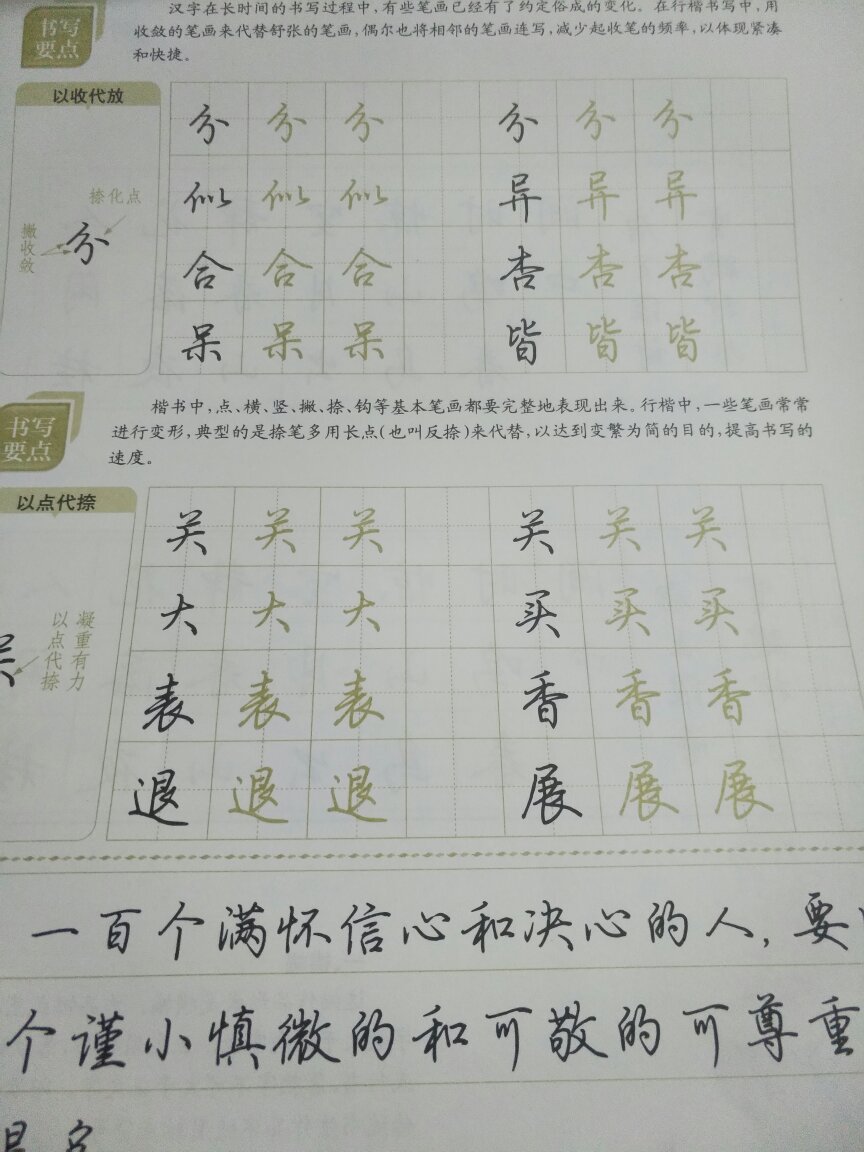 汉字在长时间的书写过程中,有些笔画已经有了约定俗成的变化。在行楷书写中,用
书写要点
收敛的笔画来代替舒张的笔画,偶尔也将相邻的笔画连写,减少起收笔的频率,以体现紧凑
和快捷。
以收代放
捺化点
撇收敛
分
分 分 分 分 分 分
似 似 似 异 异 异
合 合 合 杏 杏 杏
呆 呆 呆 皆 皆 皆
书写要点
楷书中,点、横、竖、撇、捺、钩等基本笔画都要完整地表现出来。行楷中,一些笔画常常
进行变形,典型的是捺笔多用长点(也叫反捺)来代替,以达到变繁为简的目的,提高书写的
速度。
以点代捺
凝重有力
以点代捺
关
关 关 关 关 关 关
大 大 大 买 买 买
表 表 表 香 香 香
退 退 退 展 展 展
一百个满怀信心和决心的人,要
个谨小慎微的和可敬的可尊重